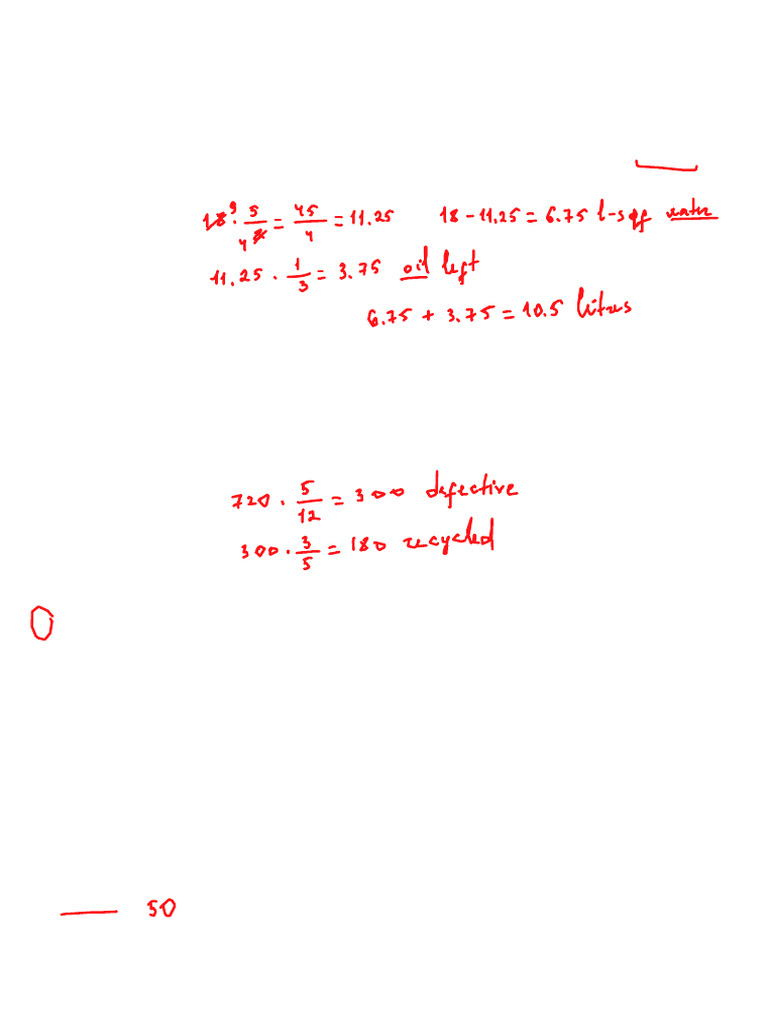 18⁹ · 5/4 8 = 45/4 = 11.25 18 - 11.25 = 6.75 l-s of water
11.25 · 1/3 = 3.75 oil left
6.75 + 3.75 = 10.5 litres
720 · 5/12 = 300 defective
300 · 3/5 = 180 recycled
50